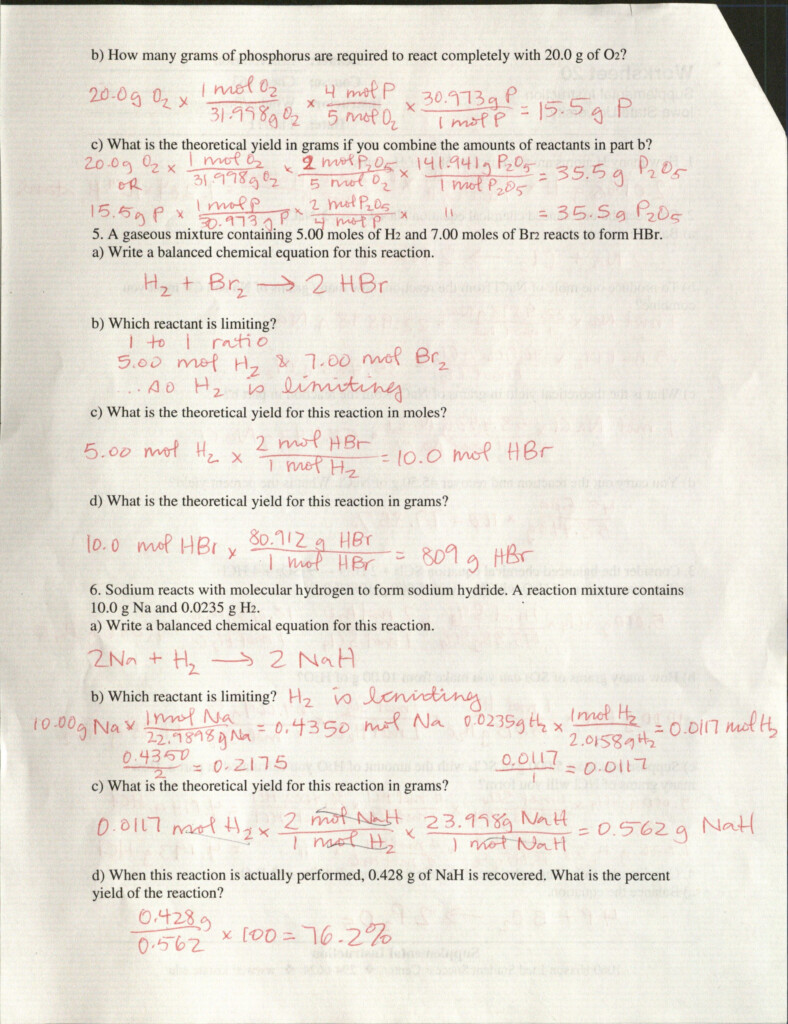 b) How many grams of phosphorus are required to react completely with 20.0 g of O2?
20.0g O2 x 1 mol O2 / 31.998g O2 x 4 mol P / 5 mol O2 x 30.973g P / 1 mol P = 15.5g P
c) What is the theoretical yield in grams if you combine the amounts of reactants in part b?
20.0g O2 x 1 mol O2 / 31.998g O2 x 2 mol P2O5 / 5 mol O2 x 141.941g P2O5 / 1 mol P2O5 = 35.5g P2O5
OR
15.5g P x 1 mol P / 30.973g P x 2 mol P2O5 / 4 mol P x " = 35.5g P2O5
5. A gaseous mixture containing 5.00 moles of H2 and 7.00 moles of Br2 reacts to form HBr.
a) Write a balanced chemical equation for this reaction.
H2 + Br2 → 2 HBr
b) Which reactant is limiting?
1 to 1 ratio
5.00 mol H2 & 7.00 mol Br2
... so H2 is limiting
c) What is the theoretical yield for this reaction in moles?
5.00 mol H2 x 2 mol HBr / 1 mol H2 = 10.0 mol HBr
d) What is the theoretical yield for this reaction in grams?
10.0 mol HBr x 80.912 g HBr / 1 mol HBr = 809 g HBr
6. Sodium reacts with molecular hydrogen to form sodium hydride. A reaction mixture contains
10.0 g Na and 0.0235 g H2.
a) Write a balanced chemical equation for this reaction.
2Na + H2 → 2 NaH
b) Which reactant is limiting? H2 is limiting
10.00g Na x 1 mol Na / 22.9898g Na = 0.4350 mol Na 0.0235g H2 x 1 mol H2 / 2.0158g H2 = 0.0117 mol H2
0.4350 / 2 = 0.2175 0.0117 / 1 = 0.0117
c) What is the theoretical yield for this reaction in grams?
0.0117 mol H2 x 2 mol NaH / 1 mol H2 x 23.998g NaH / 1 mol NaH = 0.562 g NaH
d) When this reaction is actually performed, 0.428 g of NaH is recovered. What is the percent
yield of the reaction?
0.428g / 0.562 x 100 = 76.2%